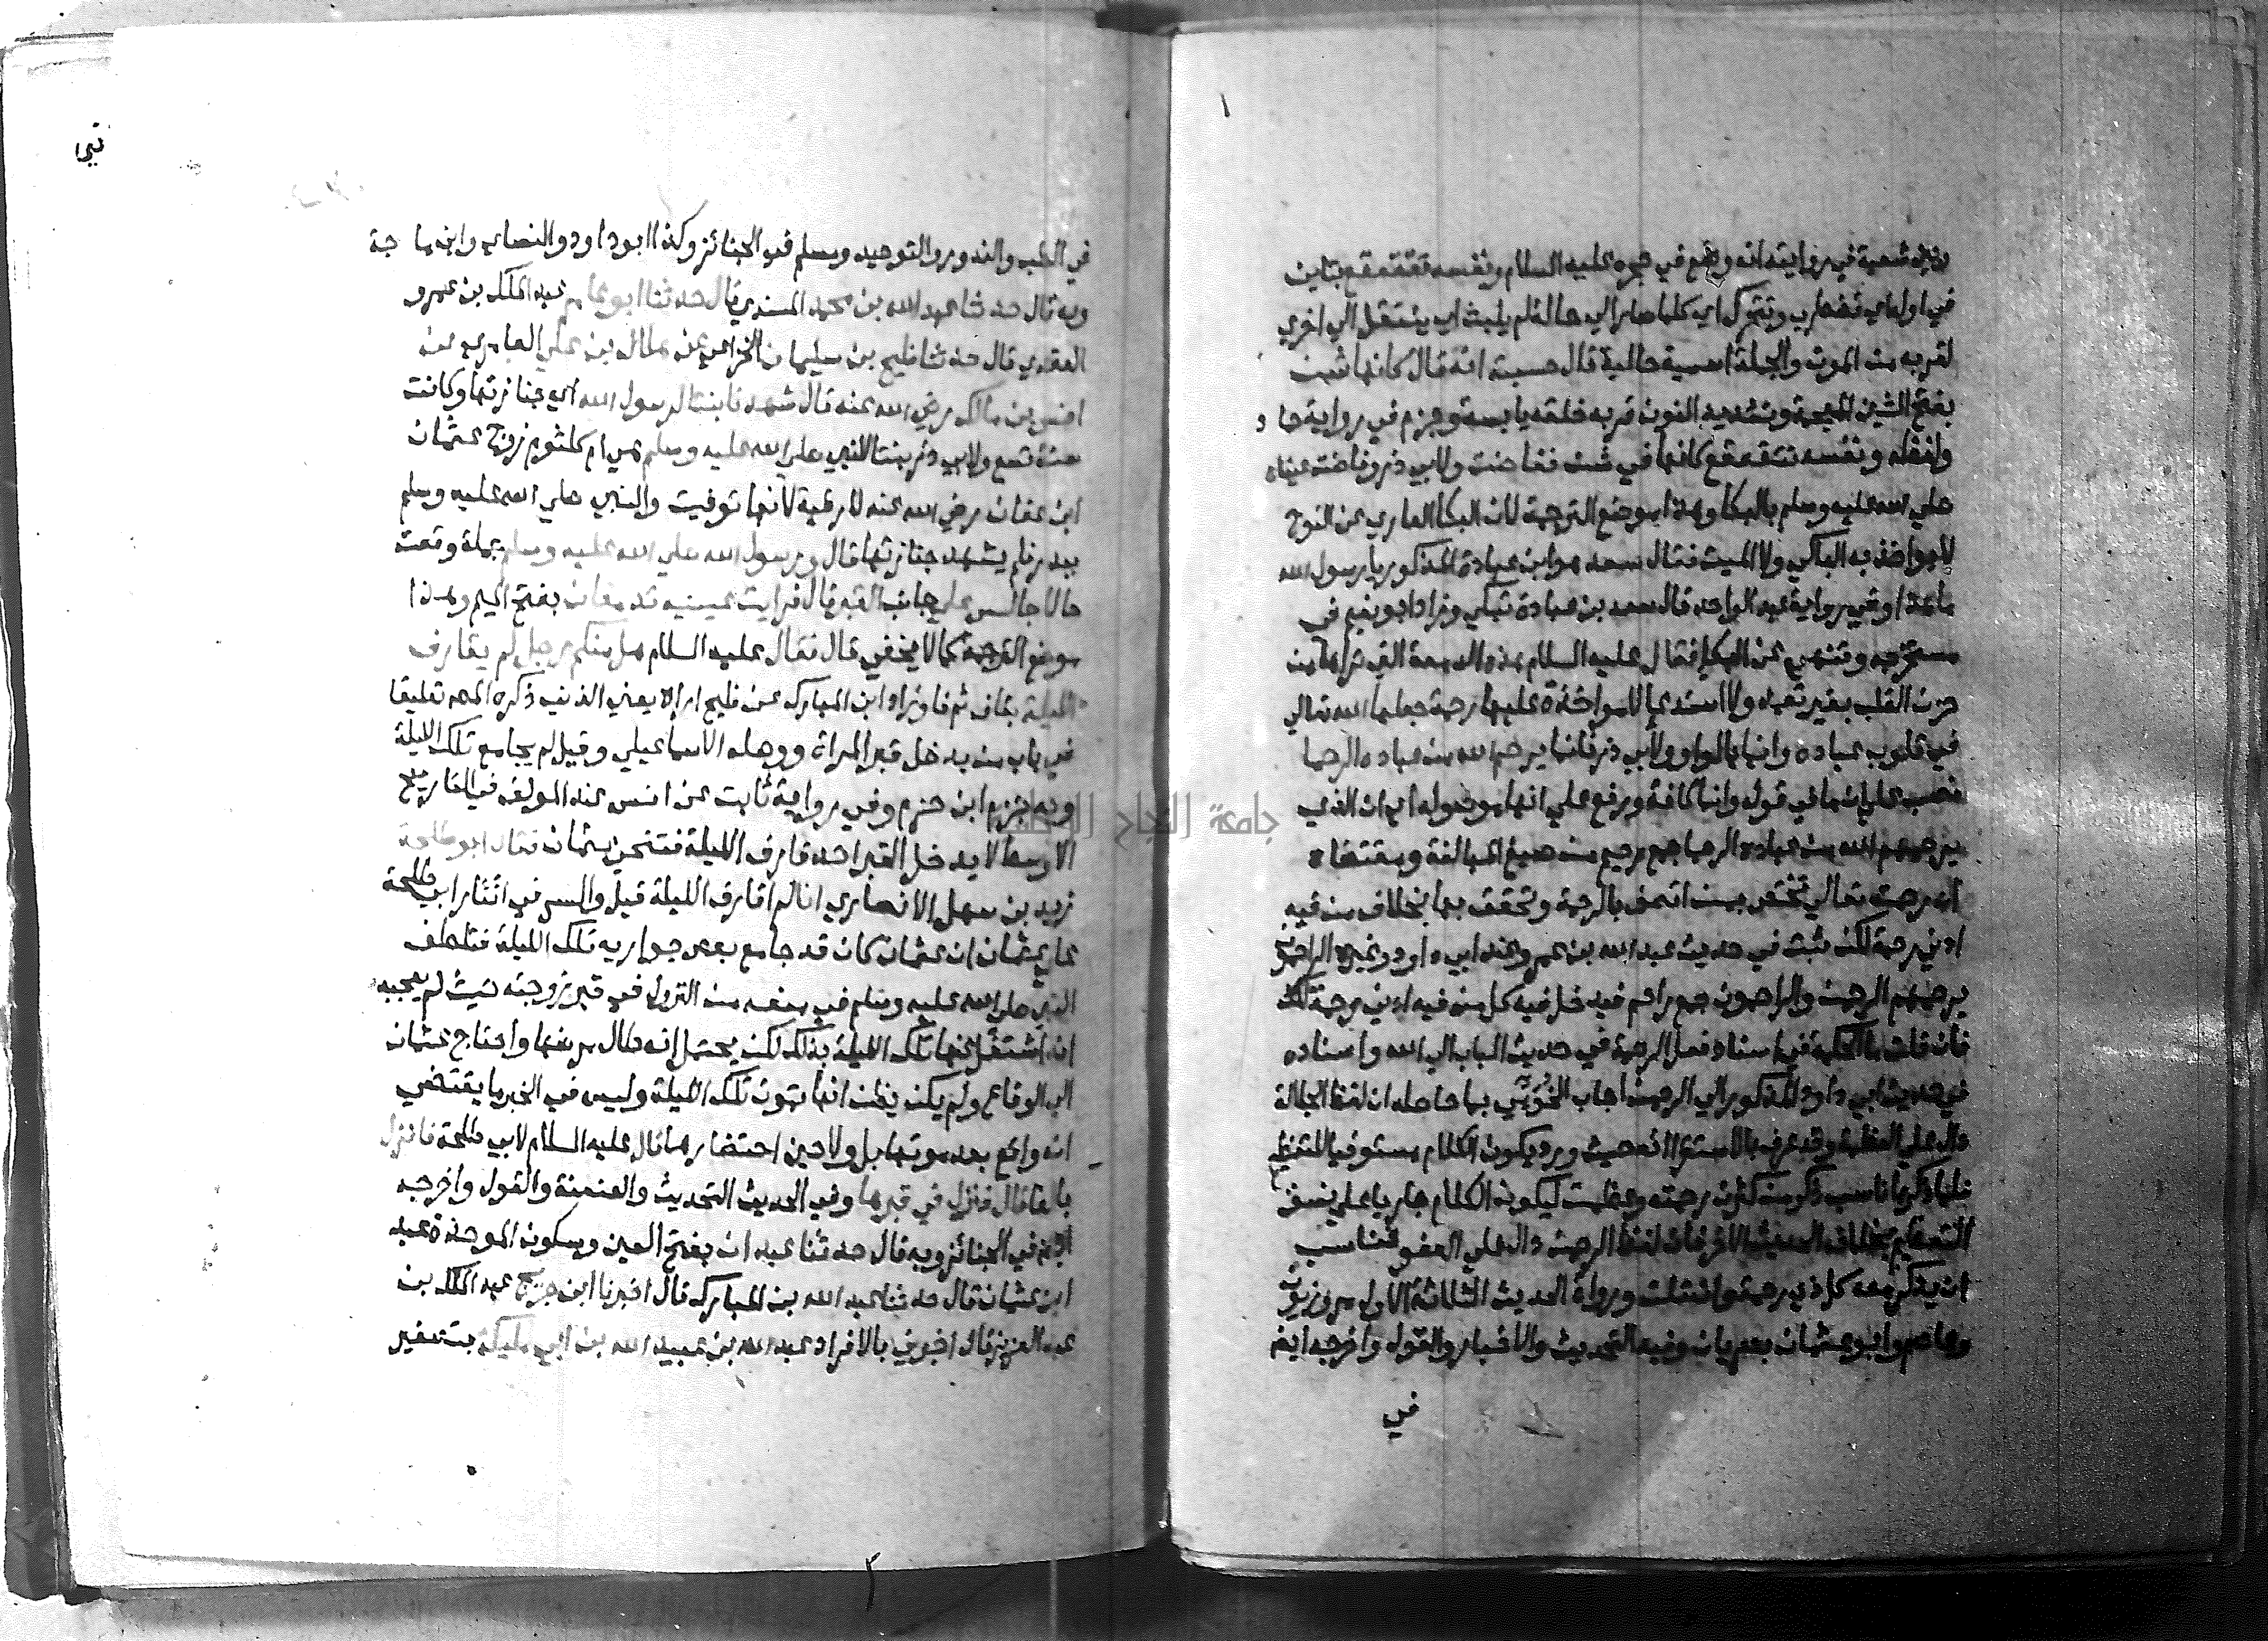 وبين شعبة في روايته انه وضع في حجره عليه السلام ونفسه تتقعقع بتاين
في اوله اي تضطرب وتتحرك اي كلما صار الي حالة لم يلبث ان ينتقل الي اخري
لقربه من الموت والجملة اسمية حالية قال حسبته انه قال كانها شن
بفتح الشين المعجمة وتشديد النون قربة خلقة يابسة وجزم في رواية حما د
ولفظه ونفسه تتقعقع كانها في شن ففاضت ولابي ذر وفاضت عيناه
صلي الله عليه وسلم بالبكا وهذا موضع الترجمة لان البكا العاري عن النوح
لا يواخذ به الباكي ولا الميت فقال سعد هو ابن عبادة المذكور يا رسول الله
ما هذا وفي رواية عبد الواحد قال سعد بن عبادة تبكي وزاد ابو نعيم في
مستخرجه وتنهي عن البكا فقال عليه السلام هذه الدمعة التي تراها من
حزن القلب بغير تعمد ولا استدعا لا مواخذة عليها رحمة جعلها الله تعالي
في قلوب عباده وانما بالواو ولابي ذر فانما يرحم الله من عباده الرحما
نصب علي ان ما في قوله وانما كافة ورفع علي انها موصولة اي ان الذي
يرحمهم الله من عباده الرحما جمع رحيم من صيغ المبالغة ومقتضاه
ان رحمته تعالي تختص بمن اتصف بالرحمة وتحقق بها بخلاف من فيه
ادني رحمة لكن ثبت في حديث عبد الله بن عمرو عند ابي داود وغيره الراحمون
يرحمهم الرحمن والراحمون جمع راحم فيدخل فيه كل من فيه ادني رحمة
فان قلت ما الحكمة في اسناد فعل الرحمة في حديث الباب الي الله واسناده
في حديث ابي داود المذكور الي الرحمن اجاب الخويي بما حاصله ان لفظ الجلالة
دال علي العظمة وقد عرف بالاستقرا انه حيث ورد يكون الكلام مسوقا للتعظيم
فلما ذكرها ناسب ذكر من كثرت رحمته وعظمت ليكون الكلام جاريا علي نسق
التعظيم بخلاف الحديث الاخر فان لفظ الرحمن دال علي العفو فناسب
ان يذكر معه كل ذي رحمة وان قلت ورواة الحديث الثلاثة الاول مروزيون
وعاصم وابو عثمان بصريان وفيه التحديث والاخبار والقول واخرجه ايض
في
في الطب والنذور والتوحيد ومسلم في الجنائز وكذا ابو داود والنسائي وابن ما جة
وبه قال حدثنا عبد الله بن محمد المسندي قال حدثنا ابو عامر عبد الملك بن عمرو
العقدي قال حدثنا فليح بن سليمان الخزاعي عن هلال بن علي العامري عن
انس بن مالك رضي الله عنه قال شهدنا بنتا لرسول الله اي جنازتها وكانت
سنة تسع ولابي ذر بنتا للنبي صلي الله عليه وسلم هي ام كلثوم زوج عثمان
ابن عفان رضي الله عنه لا رقية لانها توفيت والنبي صلي الله عليه وسلم
ببدر فلم يشهد جنازتها قال ورسول الله صلي الله عليه وسلم جملة وقعت
حالا جالس علي جانب القبر قال فرايت عينيه تدمعان بفتح الميم وهذا
موضع الترجمة كما لا يخفي قال فقال عليه السلام هل منكم رجل لم يقارف
الليلة بقاف ثم فا وزاد ابن المبارك عن فليح اراه يعني الذنب ذكره المص تعليقا
في باب من يدخل قبر المراة ووصله الاسماعيلي وقيل لم يجامع تلك الليلة
وبه جزم ابن حزم وفي رواية ثابت عن انس عند المولف في التاريخ
الاوسط لا يدخل القبر احد قارف الليلة فتنحي عثمان فقال ابو طلحة
زيد بن سهل الانصاري انا لم اقارف الليلة قيل والسر في ايثار ابي طلحة
علي عثمان ان عثمان كان قد جامع بعض جواريه تلك الليلة فتلطف
النبي صلي الله عليه وسلم في منعه من النزول في قبر زوجته حيث لم يعجبه
انه اشتغل عنها تلك الليلة بذلك لكن يحتمل انه طال مرضها واحتاج عثمان
الي الوقاع ولم يكن يظن انها تموت تلك الليلة وليس في الخبر ما يقتضي
انه واقع بعد موتها بل ولا حين احتضارها قال عليه السلام لابي طلحة فانزل
بالفا قال فنزل في قبرها وفي الحديث التحديث والعنعنة والقول واخرجه
ايض في الجنائز وبه قال حدثنا عبدان بفتح العين وسكون الموحدة عبد
ابن عثمان قال حدثنا عبد الله بن المبارك قال اخبرنا ابن جريج عبد الملك بن
عبد العزيز قال اخبرني بالافراد عبد الله بن عبيد الله بن ابي مليكة بتصغير
جامعة النجاح الوطنية